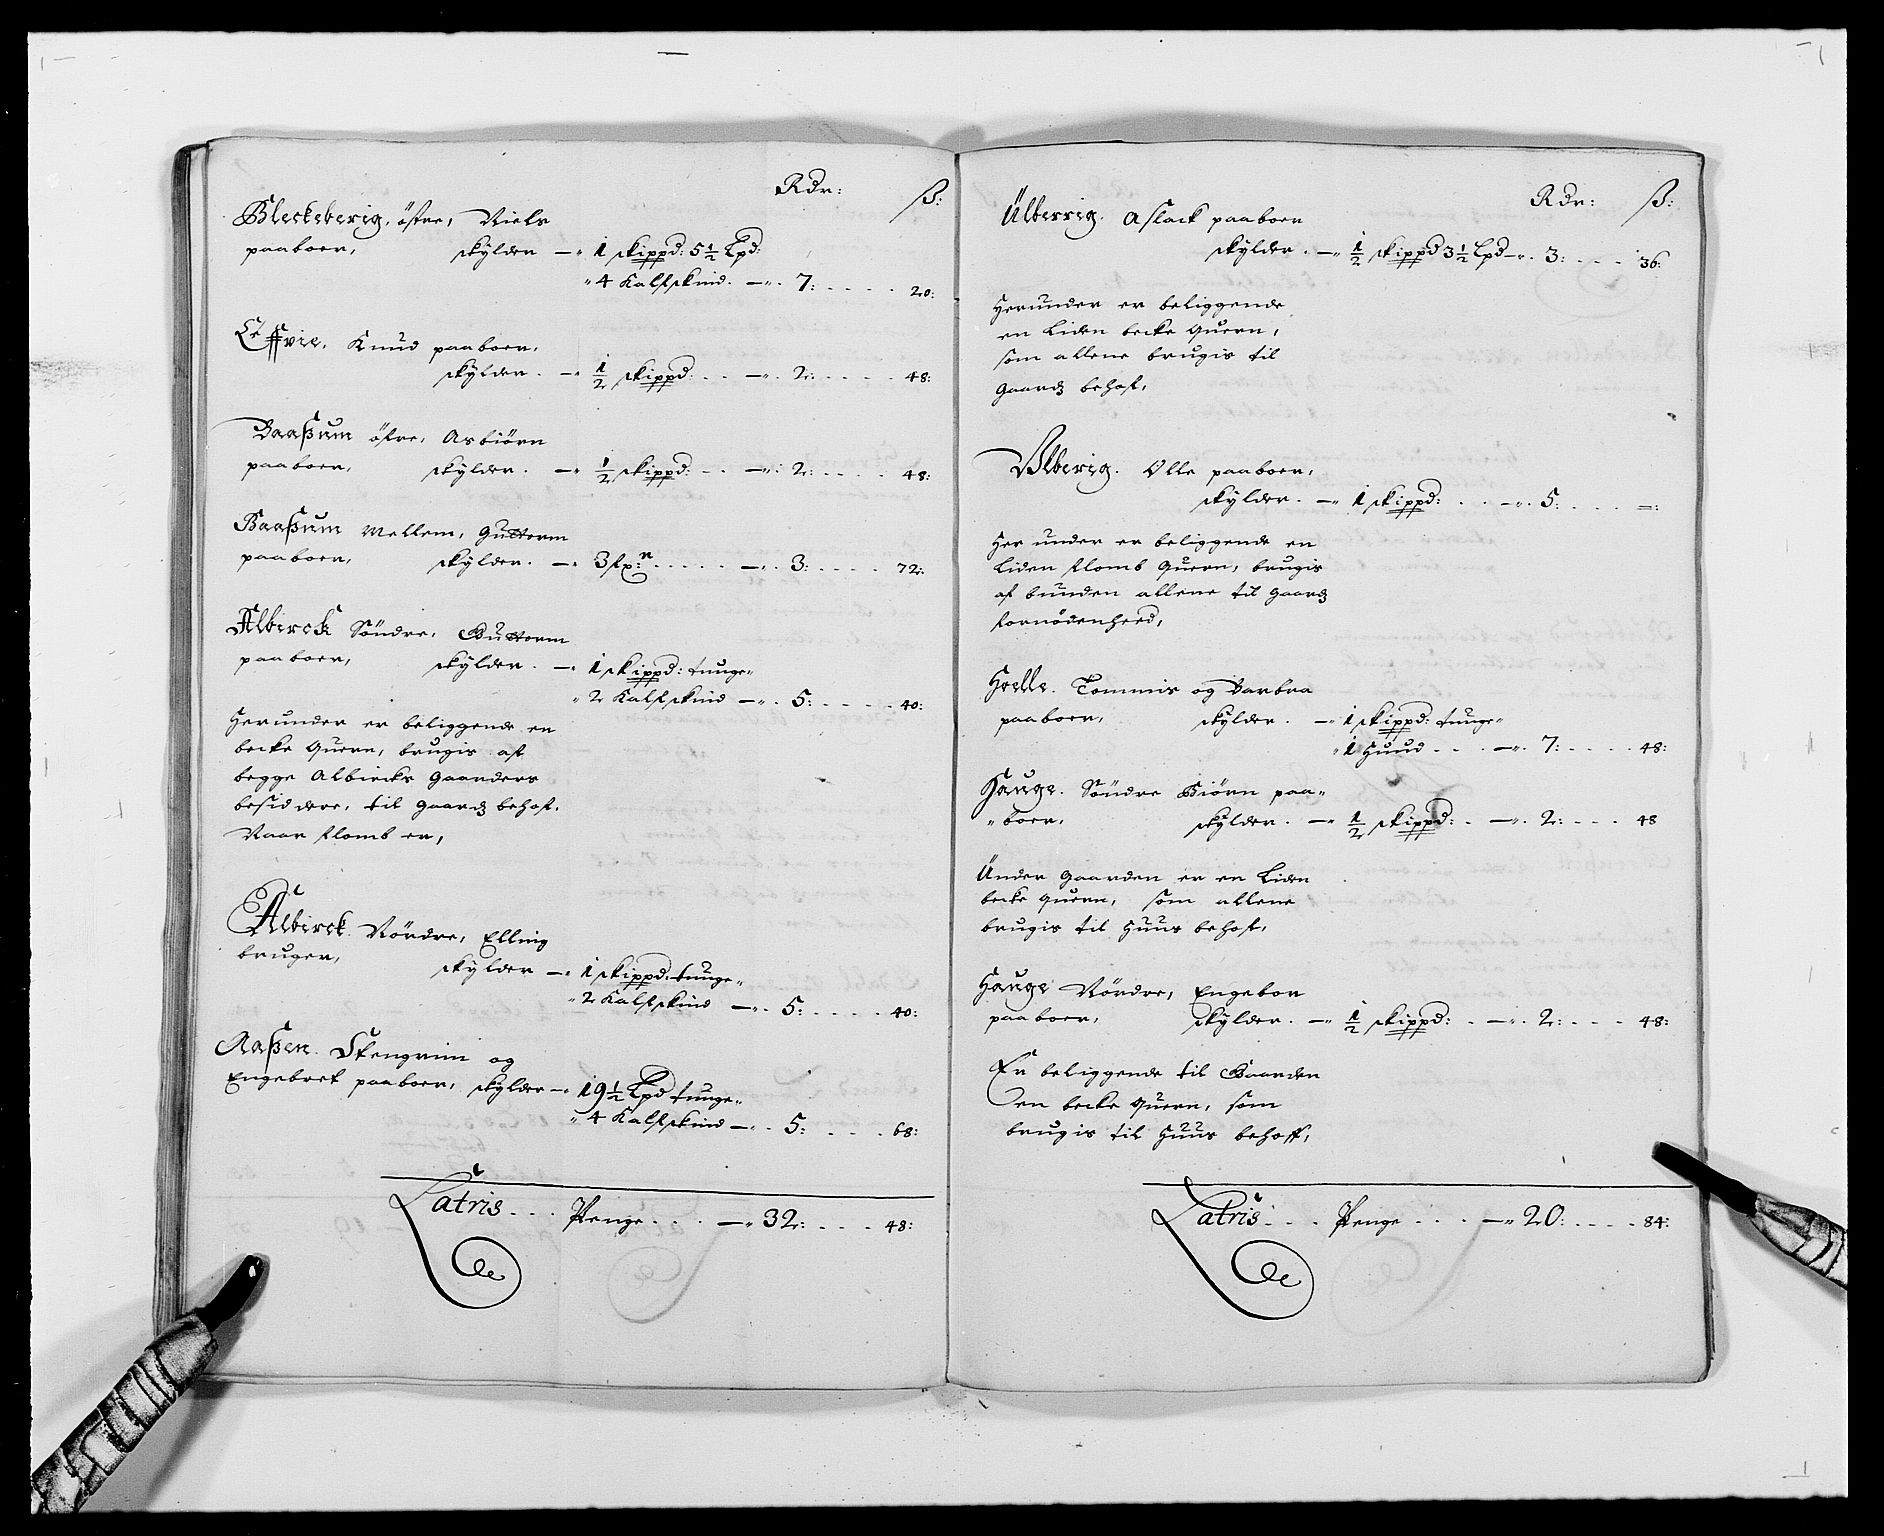 Rdr: ß:
Bleckeberig, östre, Niels
paaboer, skylder — 1 skippd: 5½ Lpd:
4 Kalfskind. — 7: . . . . 20:
Leffvie, Knud paaboer,
skylder. — ½ skippd: . . — 2: . . . . 48:
Baaßum östre, Asbiörn
paaboer, skylder. — ½ skippd: . . — 2: . . . . 48:
Baaßum Mellem, Guttorm
paaboer, skylder. — 3 fxr: . . . . . — 3: . . . . 72:
Albirck Söndre, Guttorm
paaboer, skylder. — 1 skippd: tunge
2 Kalfskind — 5: . . . . 40:
Herunder er beliggende en
becke Quern, brugis aff
begge Albircks Gaarders
besiddere, til gaards behof,
Naar flomb er,
Albirck Nördre, Elling
bruger, skylder — 1 skippd: tunge
2 Kalfskind — 5: . . . . 40:
Aaßen. Stengrim og
Engebret paaboer, skylder — 19½ Lpd tunge
4 Kalfskind — 5: . . . . 68:
Latris . . . Penge . . . — 32: . . . . 48:
Rdr: ß:
Ülberrig. Aslack paaboer
skylder. — ½ skippd 3½ Lpd — 3: . . . 36:
Herunder er beliggende
en Liden becke Quern,
som allene brugis til
Gaards behof,
Ulberig. Olle paaboer,
skylder. — 1 skippd: . . . — 5: . . . . —:
Her under er beliggende en
Liden flomb Quern, brugis
af bunden allene til gaards
fornödenheed,
Hoelle. Tommis og Barbra
paaboer, skylder. — 1 skippd: tunge
1 Huud . . . — 7: . . . . 48:
Hauge. Söndre Biörn paa-
boer, skylder. — ½ skippd: . — 2: . . . 48
Under Gaarden er en Liden
becke quern, som allene
brugis til Huus behof,
Hauge Nördre, Engebor
paaboer, skylder. — ½ skippd: . — 2: . . . 48:
Er beliggende til Gaarden
en becke Quern, som
brugis til Huus behoff,
Latris . . . Penge . . . — 20: . . . . 84: